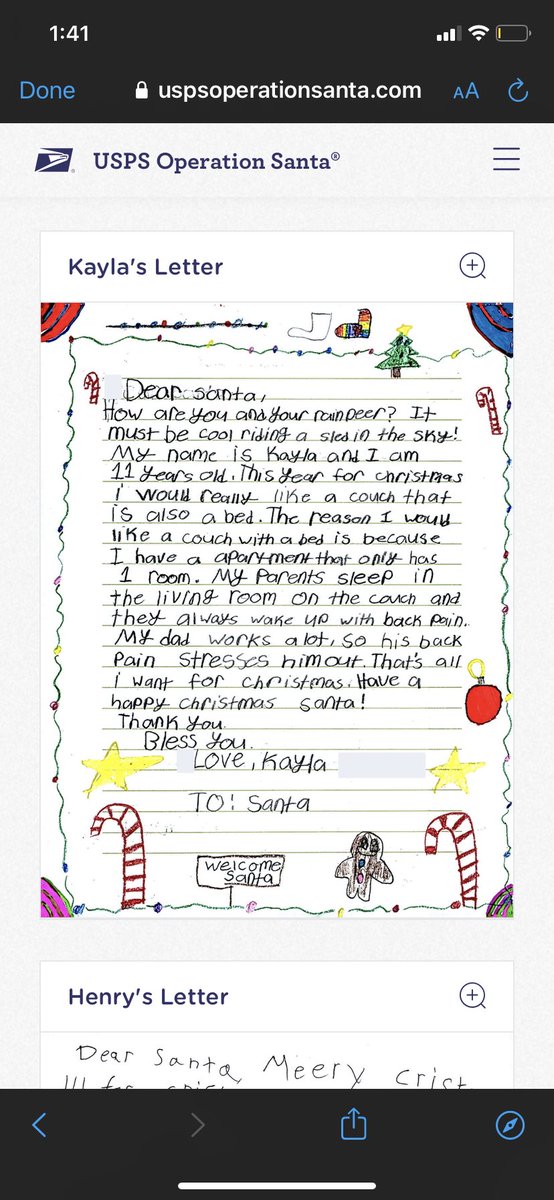 1:41
Done
uspsoperationsanta.com
AA
USPS Operation Santa®
Kayla's Letter
Dear santa,
How are you and your rainDeer? It
must be cool riding a sled in the sky!
My name is Kayla and I am
11 years old. This year for christmas
i would really like a couch that
is also a bed. The reason I would
like a couch with a bed is because
I have a apartment that only has
1 room. My Parents sleep in
the living room on the couch and
they always wake up with back pain.
My dad works a lot, so his back
Pain stresses him out. That's all
i want for christmas. Have a
happy christmas santa!
Thank You.
Bless You.
Love, Kayla
TO: Santa
welcome
santa
Henry's Letter
Dear Santa Meery crist